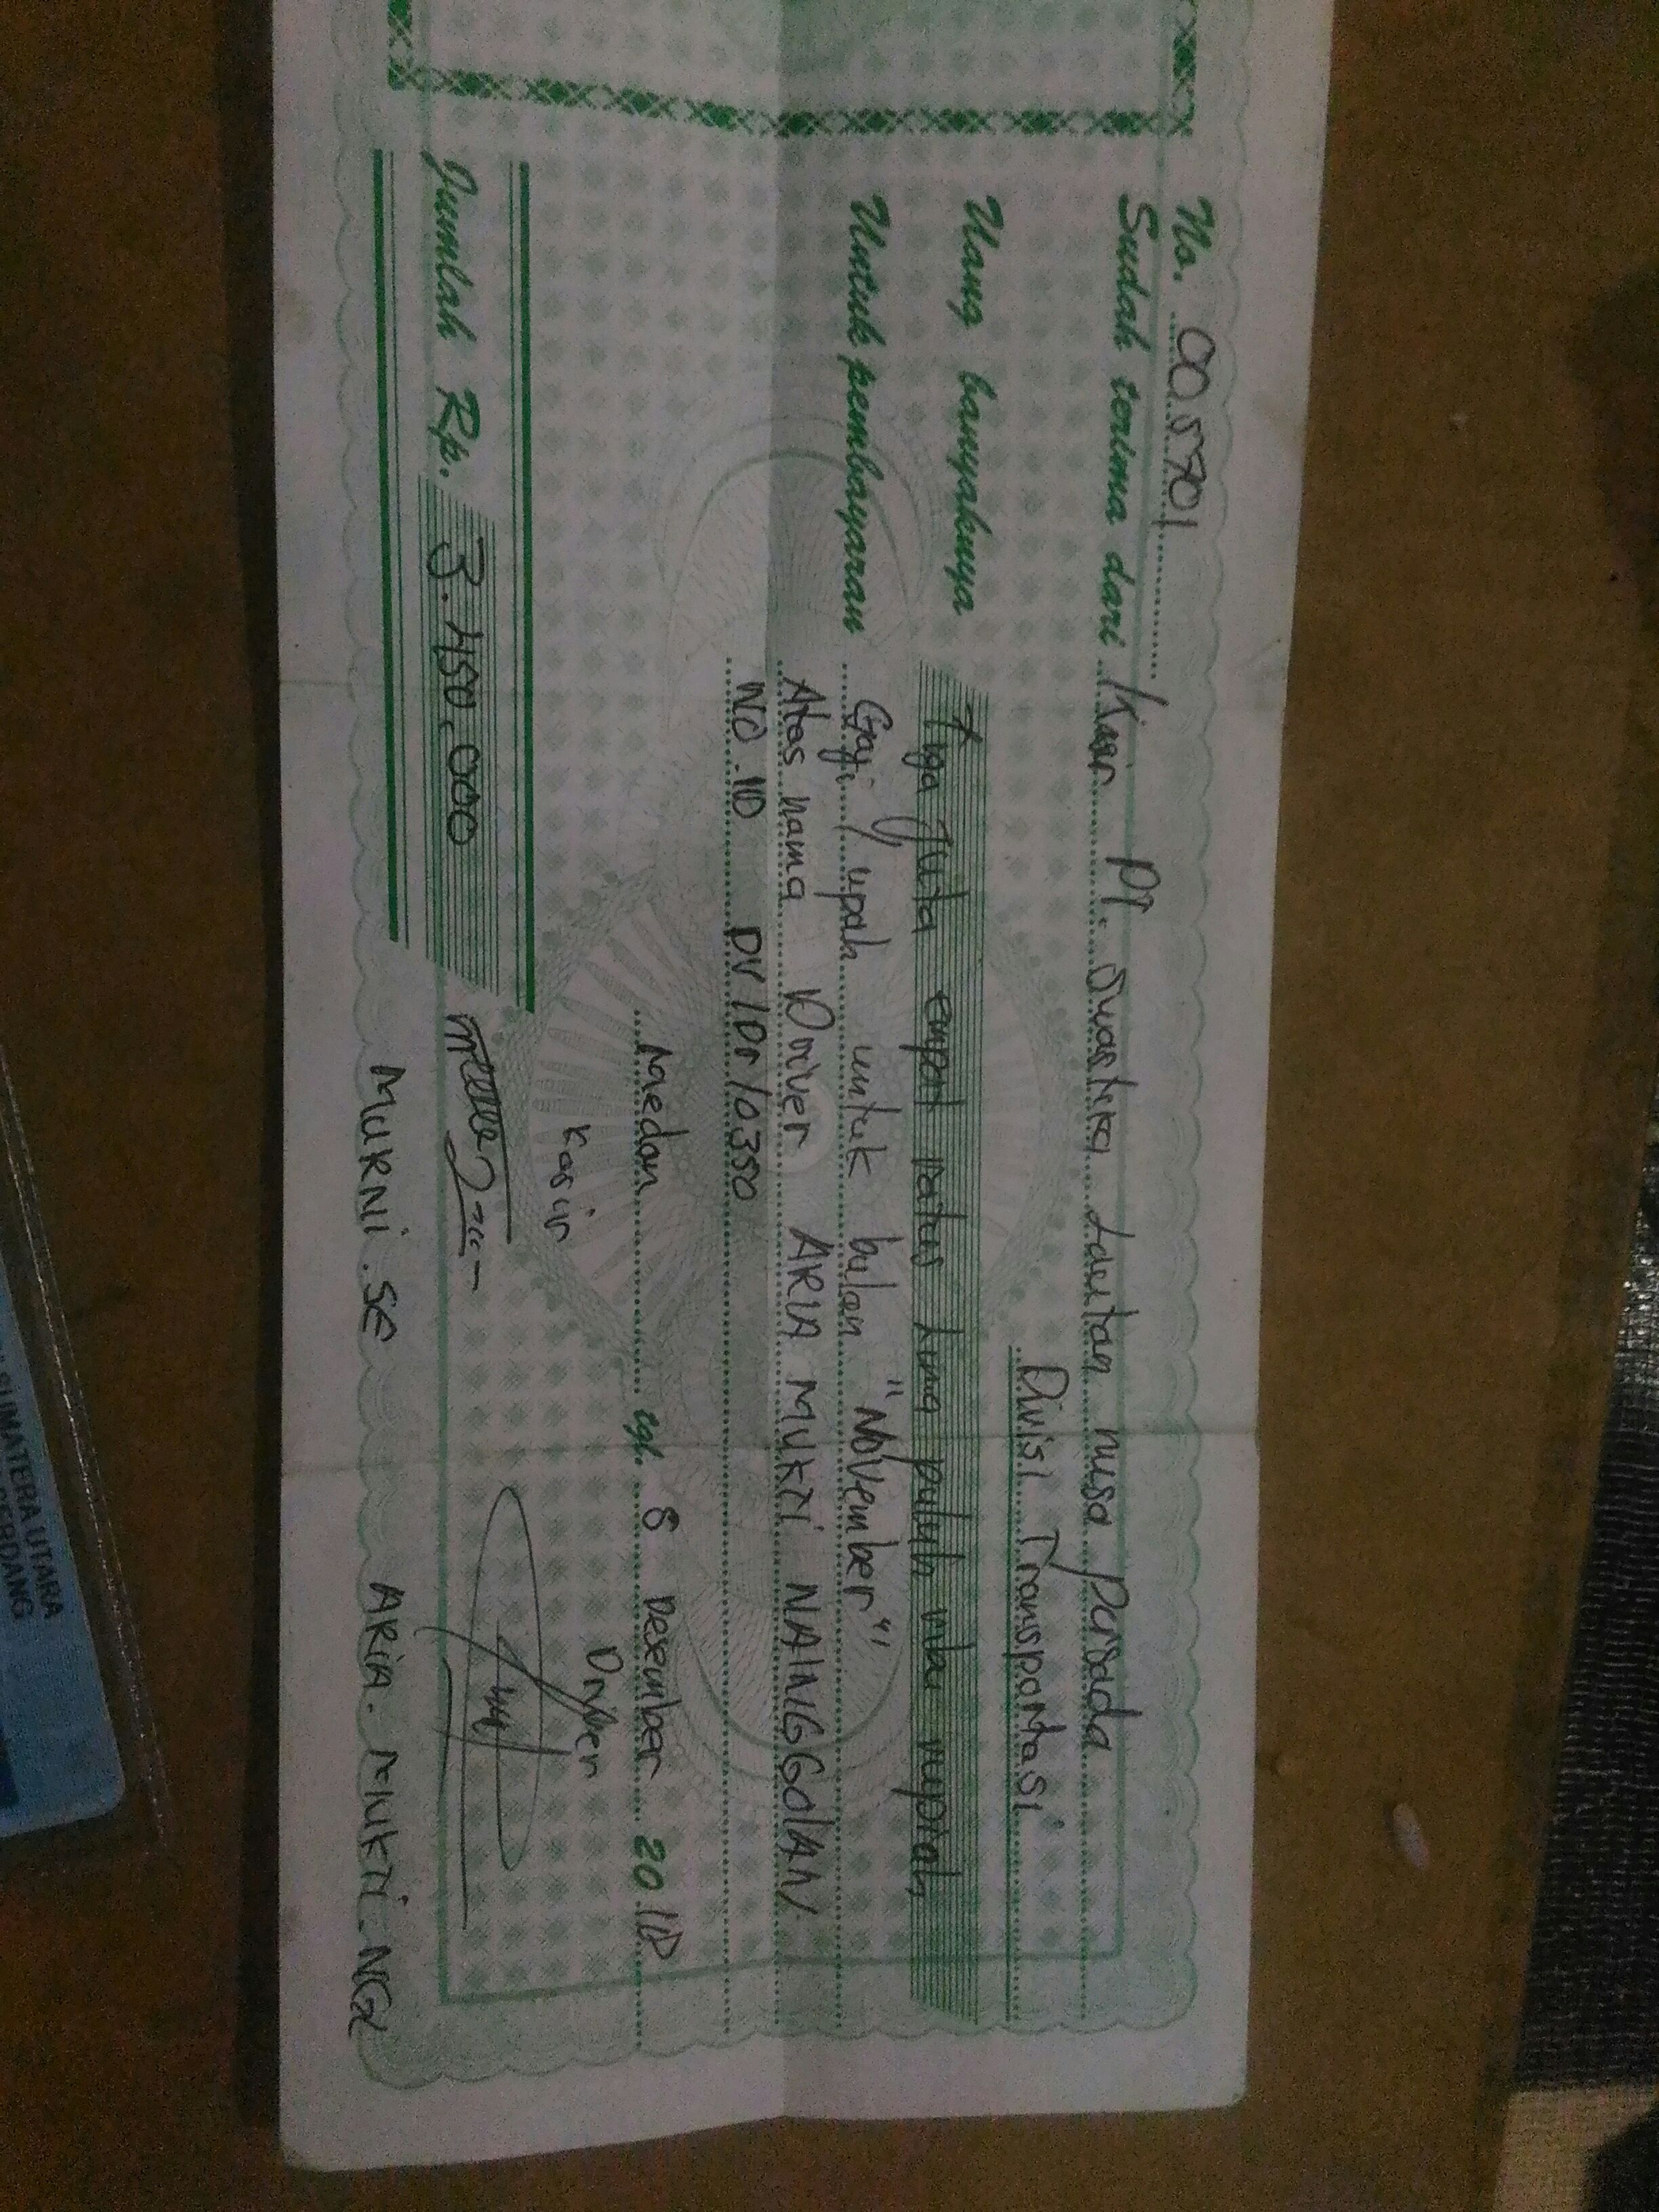 No. 005701
Sudah terima dari Kasir PT. Swastra Lautan nusa Persada
Divisi Transportasi
Uang banyaknya tiga Juta empat ratus Lima puluh ribu rupiah,
Untuk pembayaran Gaji/upah untuk bulan "November"
Atas nama Driver ARIA MUKTI NAINGGOLAN
NO. ID DV/Dr/0350
Medan tgl. 8 Desember 20 18
Kasir Dryber
Jumlah Rp. 3.450.000
MURNI. SE ARIA. MUKTI. NGL
SUMATERA UTARA
SERDANG